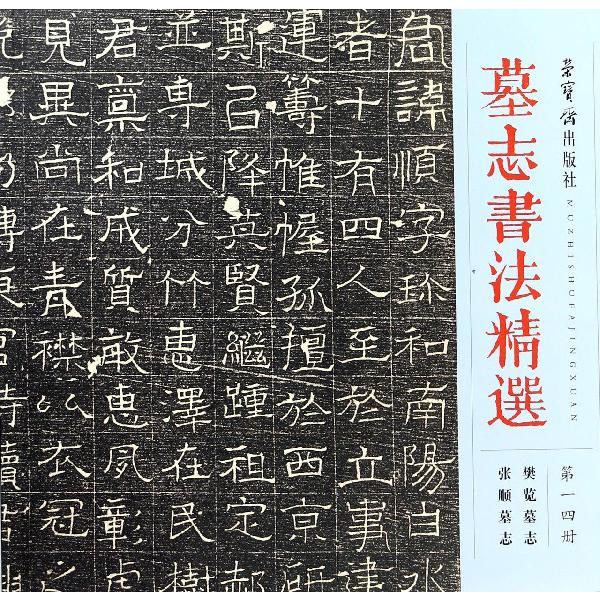 榮寶齋出版社
墓志書法精選
MUZHISHUFAJINGXUAN
第一四册
樊览墓志
张顺墓志
君諱順字珎和南陽白水
者十有四人至於立事建
運籌帷幄孤擅於西京研
斯已降英賢繼踵祖定郝
並専城分竹惠澤在民樹
君稟和成質敏惠夙彰虛
見異尚在青襟以衣冠之